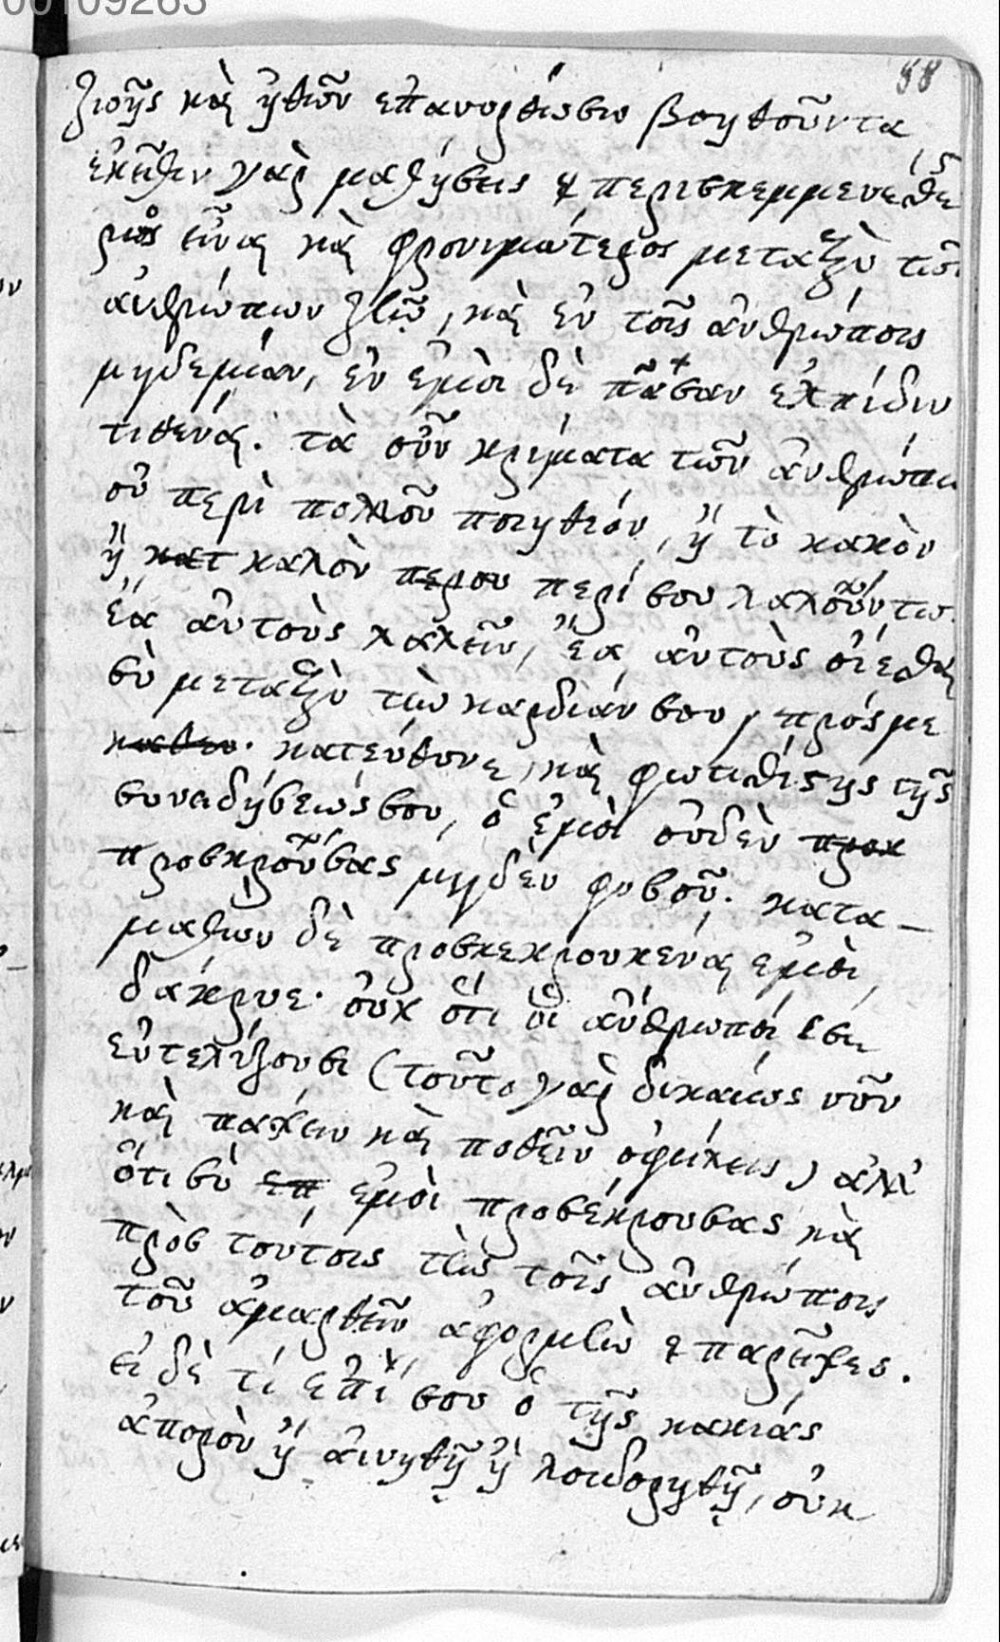 00109263
58
ζωῆς καὶ ἠθῶν ἐπανόρθωσιν βοηθοῦντα
ἐκεῖθεν γὰρ μαθήσεις περιεσκεμμενέστε
ρος εἶναι καὶ φρονιμώτερος μεταξὺ τῶν
ἀνθρώπων ζῆν, καὶ ἐν τοῖς ἀνθρώποις
μηδεμίαν, ἐν ἐμοὶ δὲ πᾶσαν ἐλπίδιν
τιθέναι. τὰ οὖν κρίματα τῶν ἀνθρώπων
οὐ περὶ πολλοῦ ποιητέον, ἢ τὸ κακὸν
ἢ κατ καλὸν περου περί σου λαλούντων.
ἔα αὐτοὺς λαλεῖν, ἔα αὐτοὺς οἴεσθαι
σὺ μεταξὺ τὴν καρδίαν σου πρός με
κατεύθυνε, καὶ φωτισθείσης τῆς
συνειδήσεώς σου, ὁ ἐμοὶ οὐδὲν προκ
προσκρούσας μηδὲν φοβοῦ. κατα-
μαθων δὲ προσκεκρουκέναι ἐμοὶ,
δάκρυε· οὐχ ὅτι οἱ ἄνθρωποί σε
εὐτελίζουσι (τοῦτο γὰρ δικαίως νῦν
καὶ πάσχειν καὶ ποθεῖν ὀφείλεις) ἀλλ'
ὅτι σὺ ἐπ ἐμοὶ προσέκρουσας καὶ
πρὸς τούτοις τὴν τοῖς ἀνθρώποις
τοῦ ἁμαρτεῖν ἀφορμὴν παρεῖχες.
εἰ δέ τι ἐπί σου ὁ τῆς κακίας
ἄπορον ἢ αἰνηθῇ ἢ λοιδορηθῇ, οὐκ